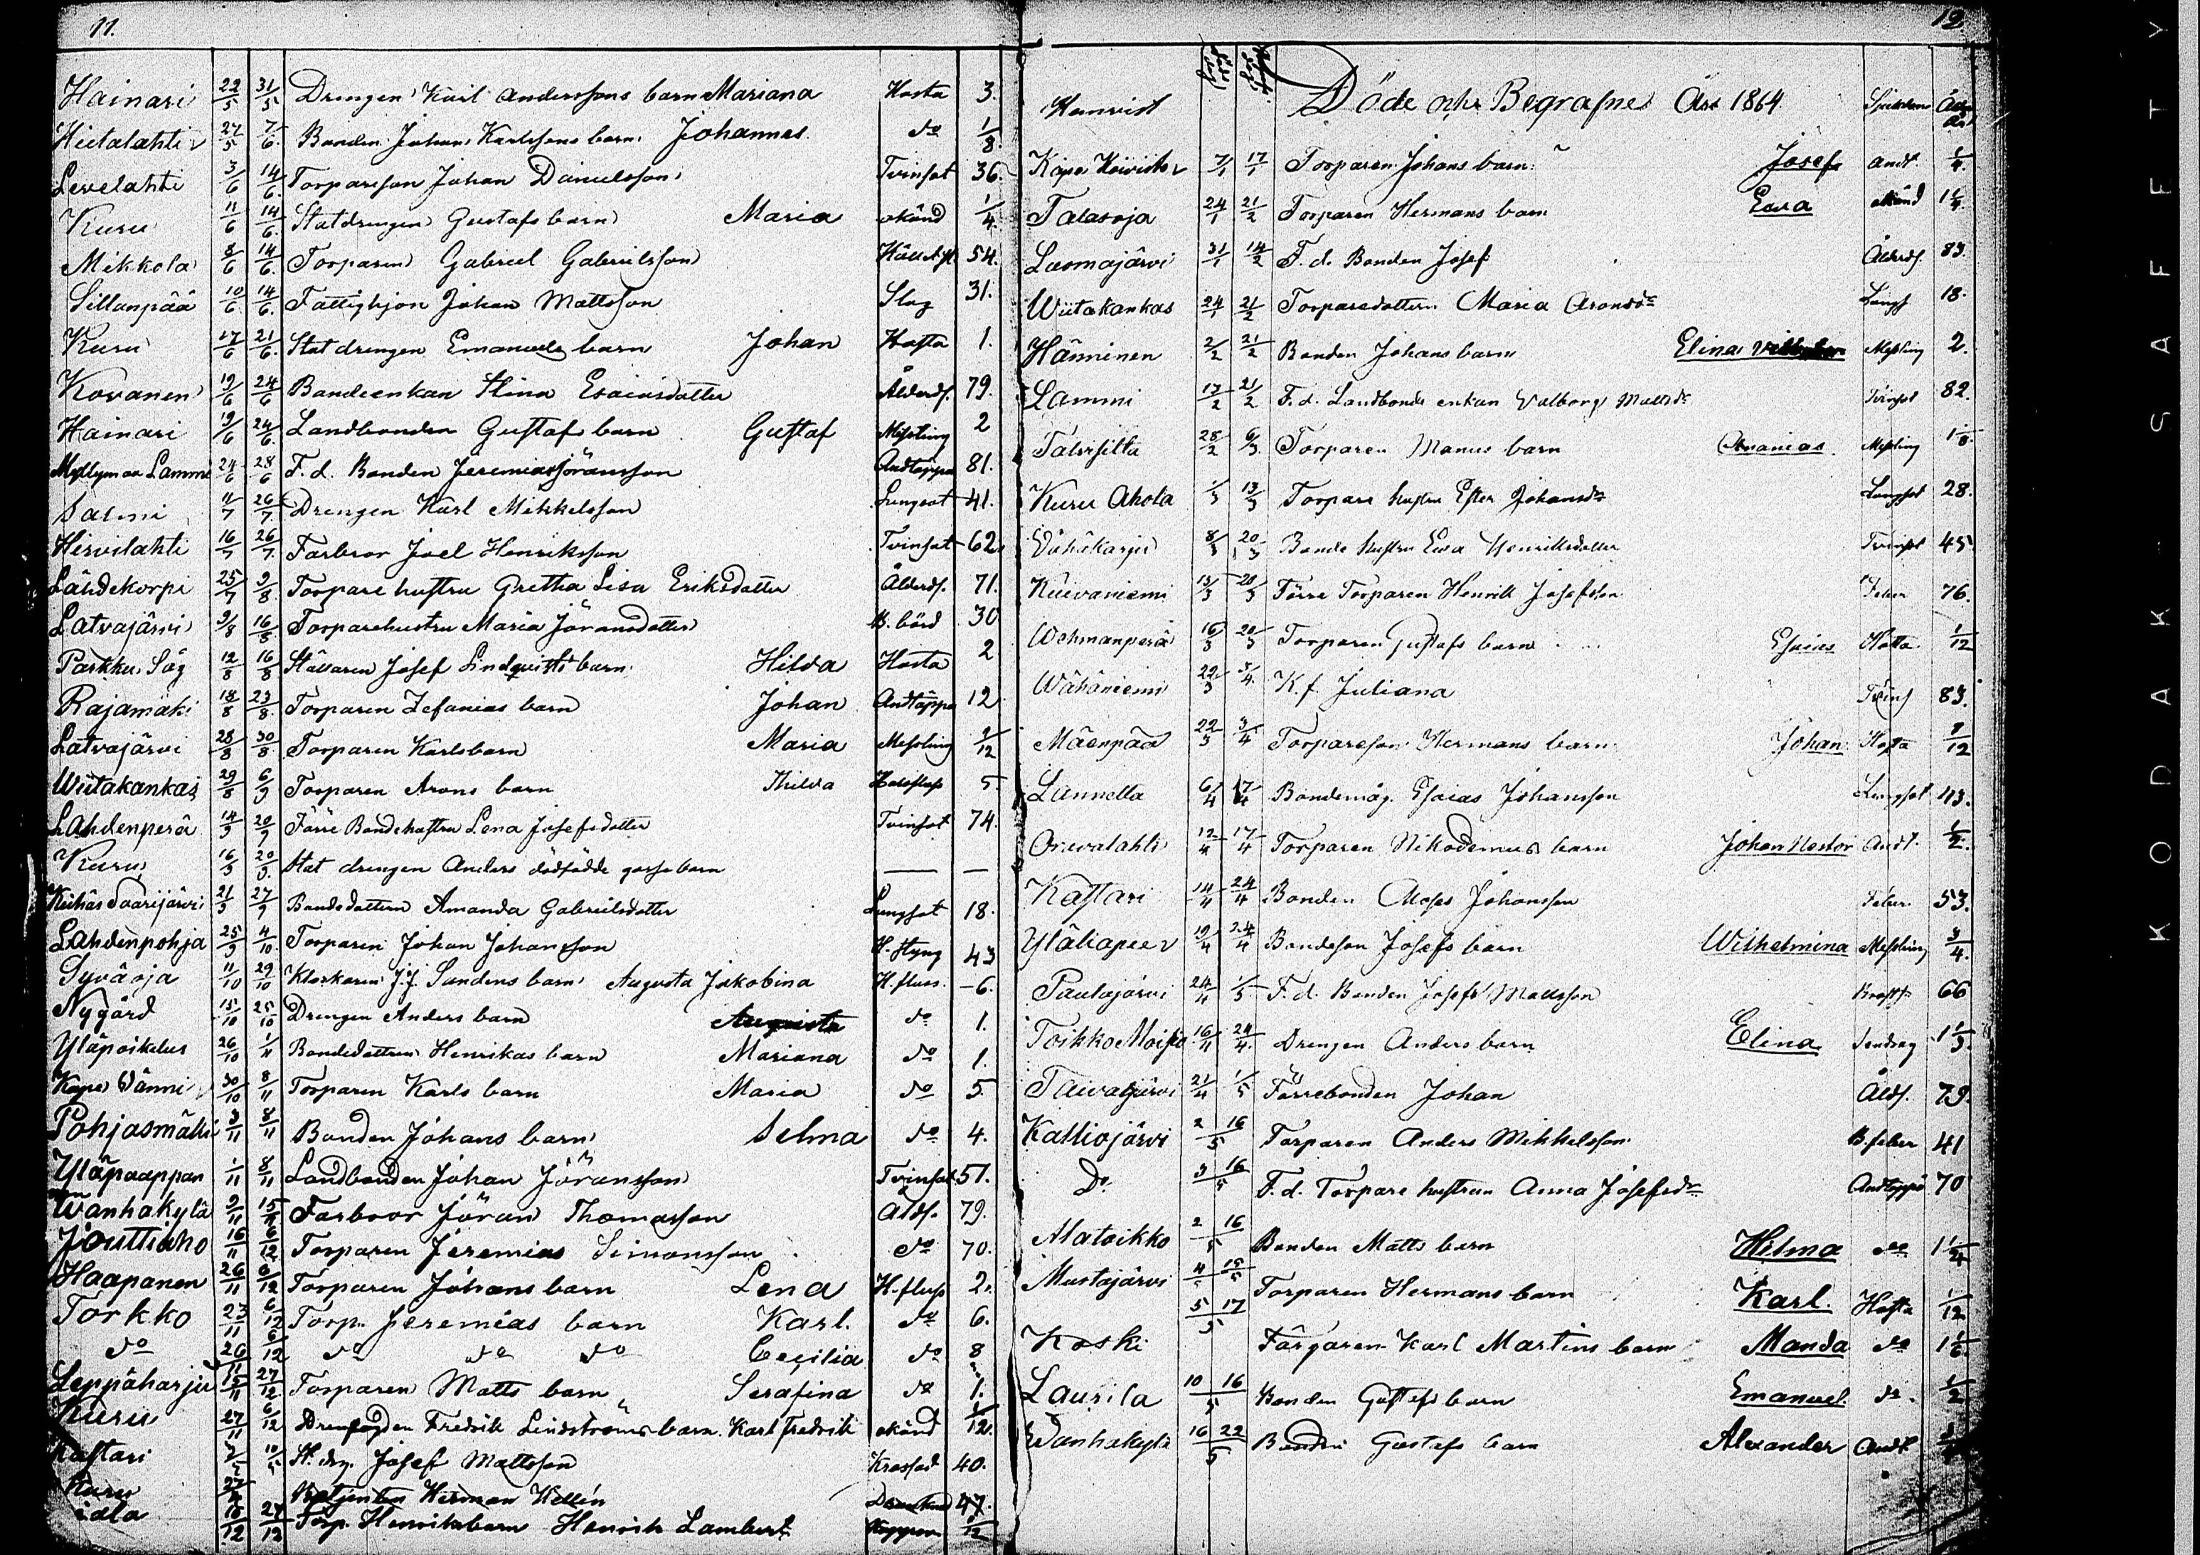 11.
Hainari 22/5 31/5 Drengen Karl Anderssons barn Mariana Hosta 3.
Hietalahti 27/5 7/6 Bonden Johan Karlssons barn Johannes do 1/8
Levelahti 3/6 14/6 Torpareson Johan Danielsson Tvinsot 36.
Kuru 11/6 14/6 Statdrengen Gustafs barn Maria okänd 1/4
Mikkola 8/6 14/6 Torparen Gabriel Gabrielsson 54.
Sillanpää 10/6 14/6 Fattighjon Johan Mattsson Slag 31.
Kuru 17/6 21/6 Statdrengen Emanuels barn Johan Hosta 1.
Kovanen 19/6 24/6 Bondeenkan Stina Esaiasdotter Ålderds. 79.
Hainari 19/6 24/6 Landbonden Gustafs barn Gustaf Messling 2
Myllymaa Lammi 24/6 28/6 F. d. Bonden Jeremias Jöransson Andtäppa 81.
Salmi 11/7 26/7 Drengen Karl Mikkelsson Lungsot 41.
Hirvilahti 16/7 26/7 Farbror Joel Henriksson Tvinsot 62.
Lähdekorpi 25/7 9/8 Torpare hustru Gretha Lisa Eriksdotter Ålderds. 71.
Latvajärvi 9/8 16/8 Torparehustru Maria Jöransdotter B. börd 30
Parkku Såg 12/8 16/8 Ställaren Josef Lindqvists barn Hilda Hosta 2
Rajamäki 18/8 23/8 Torparen Zefanias barn Johan Andtäppa 12
Latvajärvi 28/8 30/8 Torparen Karls barn Maria Messling 1/12
Wiitakankas 29/8 6/9 Torparen Arons barn Hilda 5
Lähdenperä 14/9 20/9 Förre Bondehustru Lena Josefsdotter Tvinsot 74.
Kuru 16/9 20/9 Stat drengen Anders dödfödde gosse barn — —
Keihäs Saarijärvi 21/9 27/9 Bondedottren Amanda Gabrielsdotter Lungsot 18.
Lahdenpohja 25/9 4/10 Torparen Johan Johansson H. styng 43
Syväoja 11/10 29/10 Klockaren J. J. Sandens barn Augusta Jakobina H. fluss. 6.
Nygård 15/10 25/10 Drengen Anders barn Augusta do 1.
Yläpoikelus 26/10 1/11 Bondedottren Henrikas barn Mariana do 1.
Kapee Vänni 30/10 8/11 Torparen Karls barn Maria do 5.
Pohjasmälli 3/11 8/11 Bonden Johans barn Selma do 4.
Yläpaappanen 1/11 8/11 Landbonden Johan Jöransson Tvinsot 51.
Wanhakylä 9/11 15/11 Farbror Jöran Thomasson Åldds. 79.
Jouttiaho 16/11 6/12 Torparen Jeremias Simonsson do 70.
Haapanen 26/11 6/12 Torparen Johans barn Lena H. fluss 2.
Torkko 23/11 6/12 Torp. Jeremias barn Karl. do 6.
do 26/11 6/12 do do do Cecilia do 8
Leppäharju 15/11 27/12 Torparen Matts barn Serafina do 1.
Kuru 27/11 6/12 Fredrik Lindströms barn. Karl Fredrik okänd 1/12
Kastari 10/5 St. drg. Josef Mattsson 40.
Kuru Herman Wellén 47.
27/12 Torp. Henriks barn Henrik Lambert 1/12
12.
Hemvist Döde och Begrafne År 1864. Sjukdom Ålder år
Kapee Koivisto 7/1 17/1 Torparen Johans barn Josef Andt. 1/4
Talasoja 24/1 21/2 Torparen Hermans barn Ewa okänd 1 1/4
Luomajärvi 31/1 14/2 F. d. Bonden Josef Ålderds. 83.
Wiitakankas 24/1 21/2 Torparedottern Maria Aronsdr Lungs 18.
Hänninen 2/2 21/2 Bonden Johans barn Elina Messling 2.
Lammi 17/2 21/2 F. d. Landbonde enkan Valborg Mattsdr Tvinsot 82.
28/2 6/3 Torparen Manus barn Ananias Messling 1 1/8
Kuru Ahola 1/3 13/3 Torpare hustru Ester Johansdr Lungsot 28.
Vähäkarju 8/3 20/3 Bonde hustru Ewa Henriksdotter Tvinsot 45
Kuivaniemi 13/3 20/3 Förre Torparen Henrik Josefsson Feber 76.
Wehmanperä 16/3 20/3 Torparen Gustafs barn Esaias Hosta 1/12
Wähäniemi 22/3 3/4 K. f. Juliana Tvins 83.
Mäenpää 22/3 3/4 Torpareson Hermans barn Johan Hosta 7/12
Lannetta 6/4 17/4 Bondemåg. Esaias Johansson Lungsot 43.
Orivalahti 12/4 17/4 Torparen Nikodemus barn Johan Nestor Andt. 1/2
Kastari 14/4 24/4 Bonden Moses Johansson Feber 53.
Yläliapee 19/4 24/4 Bondeson Josefs barn Wilhelmina Messling 3/4
Paulajärvi 24/4 1/5 F. d. Bonden Josef Mattsson 66
Toikko Moisio 16/4 24/4 Drengen Anders barn Elina 1 1/3
Taivaljärvi 21/4 1/5 Förrebonden Johan Åldf. 79.
Kalliojärvi 2/5 16/5 Torparen Anders Mikkelsson B. feber 41
Do 3/5 16/5 F. d. Torpare hustrun Anna Josefsdr Andtäppa 70
Matoikko 2/5 16/5 Bonden Matts barn Hilma do 1 1/4
Mustajärvi 4/5 15/5 Torparen Hermans barn Karl. Hosta 1/12
Koski 5/5 17/5 Färgaren Karl Martins barn Manda do 1 1/6
Laurila 10/5 16/5 Bonden Gustafs barn Emanuel. do. 1/2
Wanhakylä 16/5 22/5 Bonden Gustafs barn Alexander Andt.
KODAK SAFETY